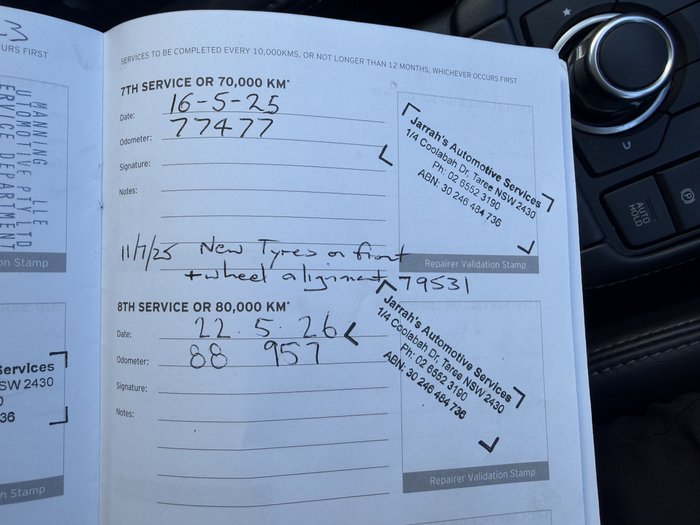 URS FIRST
MANNING
UTOMOTIVE PTY LTD
ERVICE DEPARTMENT
on Stamp
ervices
SW 2430
36
n Stamp
SERVICES TO BE COMPLETED EVERY 10,000KMS, OR NOT LONGER THAN 12 MONTHS, WHICHEVER OCCURS FIRST
7TH SERVICE OR 70,000 KM*
Date: 16-5-25
Odometer: 77477
Signature:
Notes:
Jarrah's Automotive Services
1/4 Coolabah Dr, Taree NSW 2430
Ph: 02 6552 3190
ABN: 30 246 484 736
Repairer Validation Stamp
11/7/25 New Tyres on front
+ wheel alignment 79531
8TH SERVICE OR 80,000 KM*
Date: 22.5.26
Odometer: 88 957
Signature:
Notes:
Jarrah's Automotive Services
1/4 Coolabah Dr, Taree NSW 2430
Ph: 02 6552 3190
ABN: 30 246 484 736
Repairer Validation Stamp
AUTO
HOLD